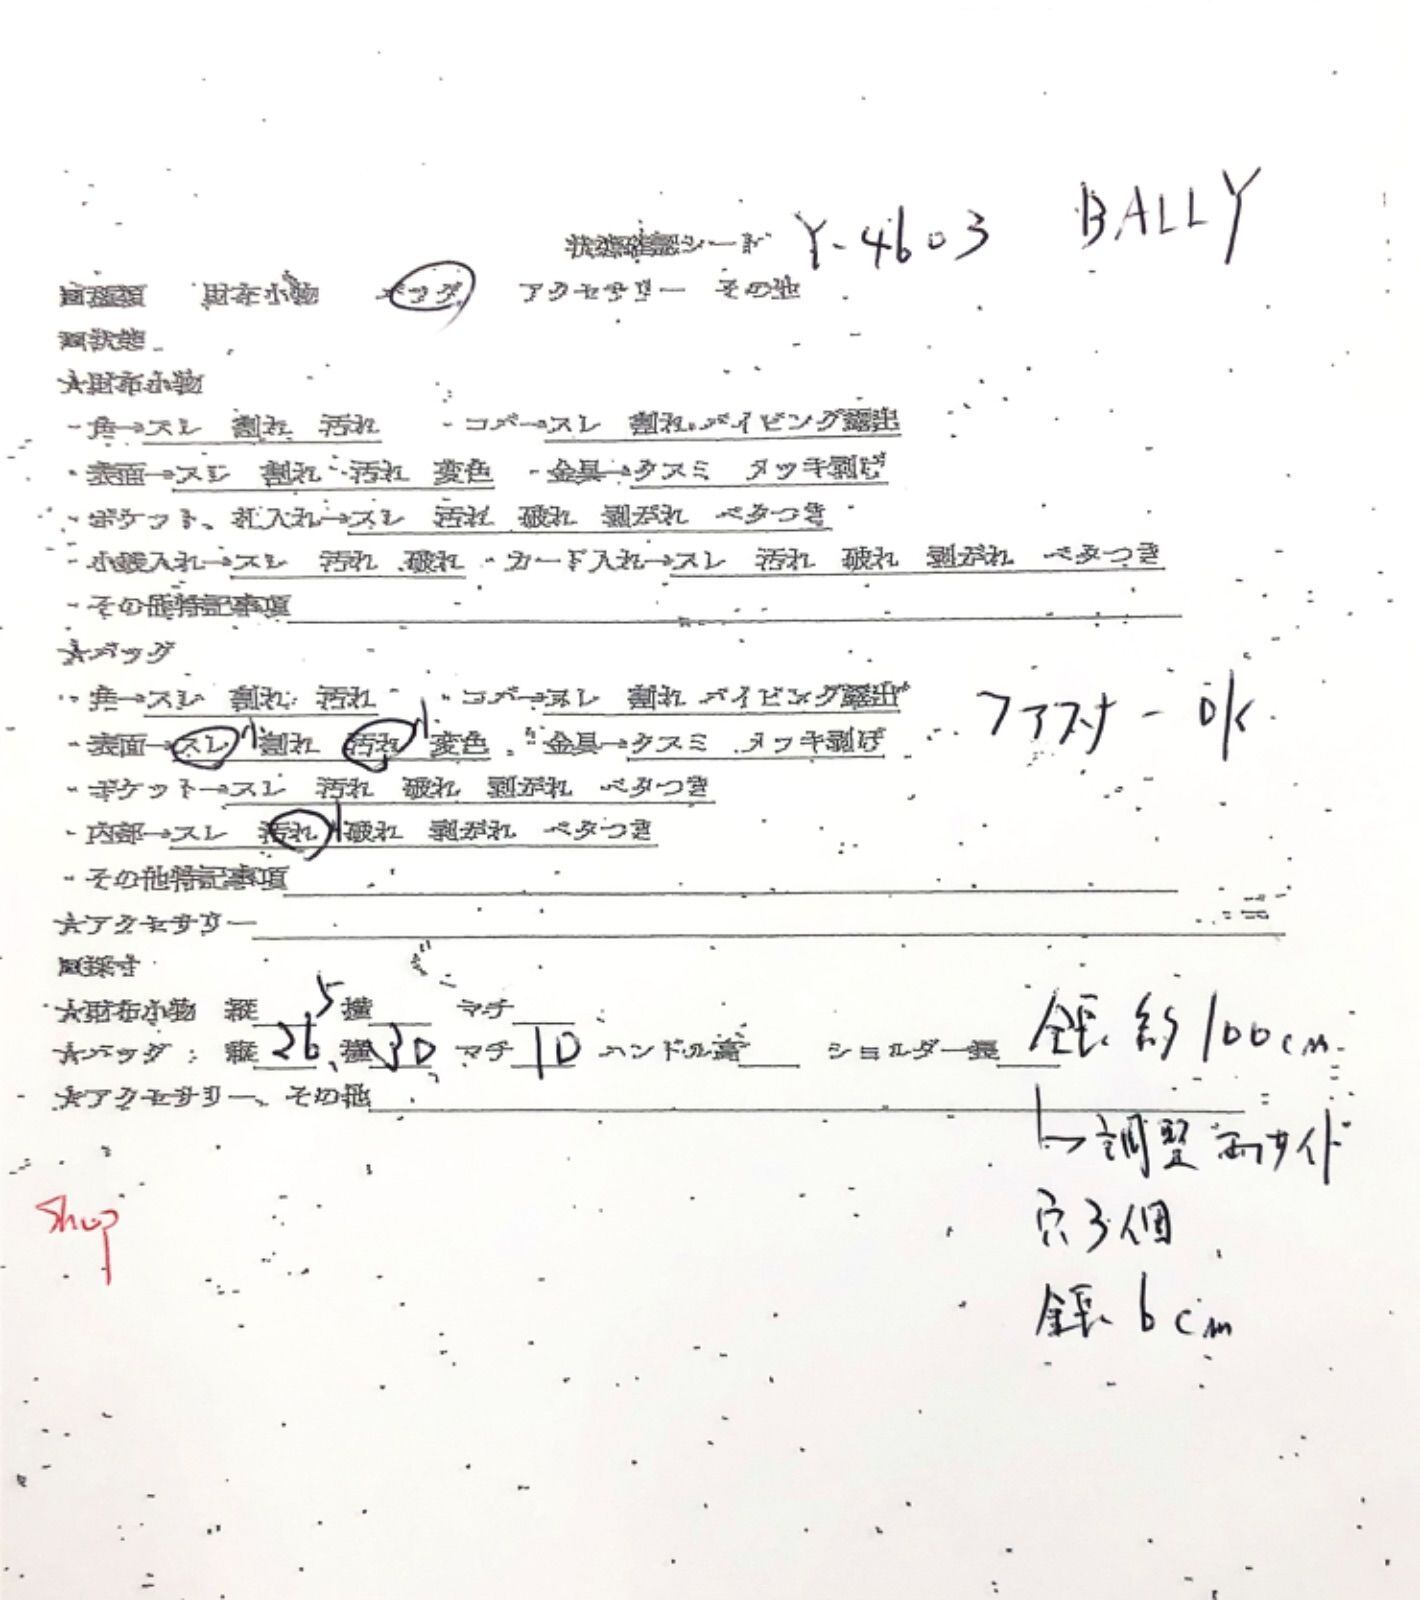 状態確認シート Y-4603 BALLY
■種類 財布小物 バッグ アクセサリー その他
■状態
★財布小物
・角→スレ 割れ 汚れ ・コバ→スレ 割れ パイピング露出
・表面→スレ 割れ 汚れ 変色 ・金具→クスミ メッキ剥げ
・ポケット、札入れ→スレ 汚れ 破れ 剥がれ ベタつき
・小銭入れ→スレ 汚れ 破れ ・カード入れ→スレ 汚れ 破れ 剥がれ ベタつき
・その他特記事項
★バッグ
・角→スレ 割れ 汚れ ・コバ→スレ 割れ パイピング露出
ファスナー OK
・表面→スレ 小 割れ 汚れ 小 変色 ・金具→クスミ メッキ剥げ
・ポケット→スレ 汚れ 破れ 剥がれ ベタつき
・内部→スレ 汚れ 小 破れ 剥がれ ベタつき
・その他特記事項
★アクセサリー
■採寸
★財布小物 縦 横 マチ
★バッグ 縦 26.5 横 30 マチ 10 ハンドル高 ショルダー長 全長 約100cm
★アクセサリー、その他
↳調整 両サイド
穴3個
全長 6cm
Shop